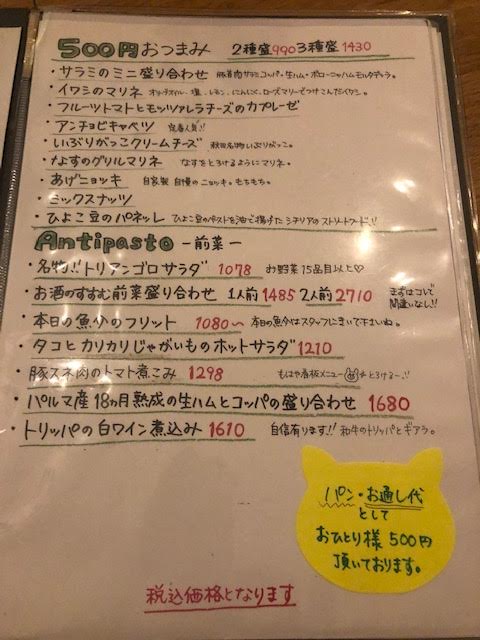 500円おつまみ 2種盛990 3種盛1430
・サラミのミニ盛り合わせ
・イワシのマリネ オリーブオイル・塩、レモン、にんにく、ローズマリーでつけこんだイワシ。
・フルーツトマトとモッツァレラチーズのカプレーゼ
・アンチョビキャベツ 定番人気!!
・いぶりがっこクリームチーズ 秋田名物いぶりがっこ。
・なすのグリルマリネ なすをとろけるようにマリネ。
・あげニョッキ 自家製 自慢のニョッキ。もちもち。
・ミックスナッツ
・ひよこ豆のパネッレ ひよこ豆のペーストを油で揚げたシチリアのストリートフード!!
Antipasto -前菜-
・名物!!トリアンゴロサラダ 1078 お野菜15品目以上♡
・お酒のすすむ前菜盛り合わせ 1人前1485 2人前2710 まずはコレで間違いなし!!
・本日の魚介のフリット 1080〜 本日の魚介はスタッフにきいて下さいね。
・タコとカリカリじゃがいものホットサラダ 1210
・豚スネ肉のトマト煮こみ 1298 もはや看板メニュー とろけるー!!
・パルマ産18ヵ月熟成の生ハムとコッパの盛り合わせ 1680
・トリッパの白ワイン煮込み 1610 自信有ります!! 和牛のトリッパとギアラ。
パン・お通し代
として
おひとり様500円
頂いております。
税込価格となります